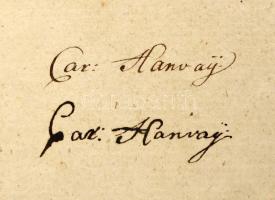 Car: Hanvaÿ
Car: Hanvaÿ: